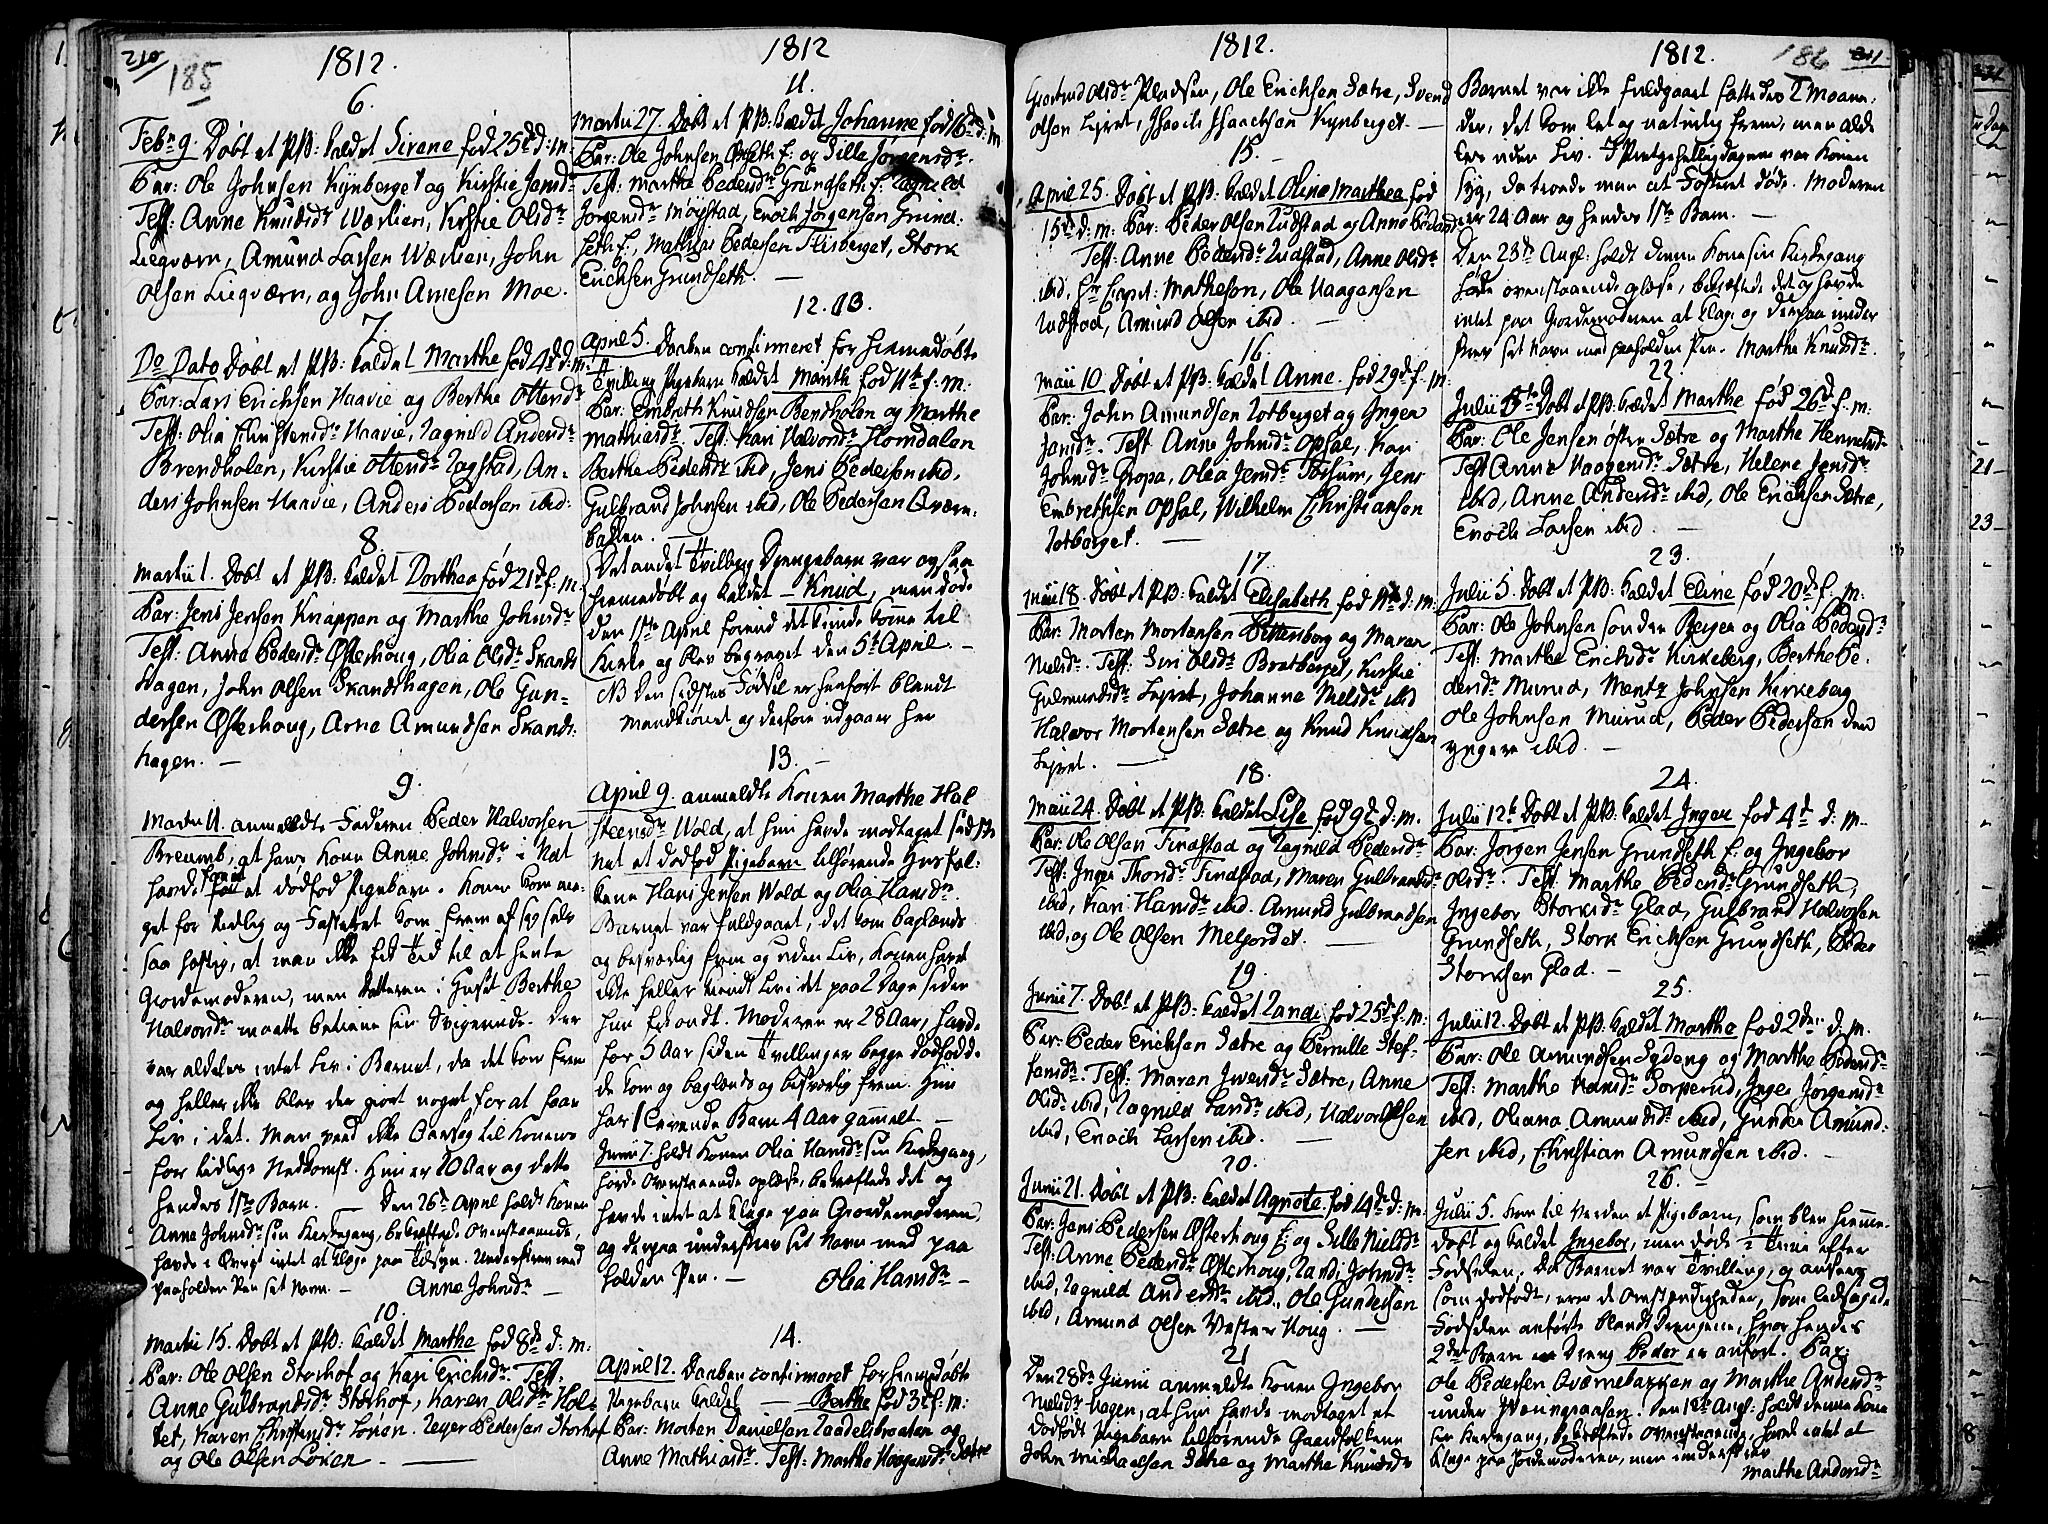 210
185
1812.
6.
Febr. 9. Døbt et PB: kaldet Sirene fød 25de d: m:
Par: Ole Johnsen Kynberget og Kirstie Jensdr
Test: Anne Knudsdr Wærlien, Kirstie Olsdr
Liegværn, Amund Larsen Wærlien, John
Olsen Liegværn, og John Arnesen Moe.
7.
Do Dato Døbt et PB: kaldet Marthe fød 4de d: m:
Par: Lars Erichsen Haavie og Berthe Ottersdr
Test: Olia Christensdr Haavie, Ragnild Andersdr
Brendholen, Kirstie Ottersdr Rogstad, An-
ders Johnsen Haavie, Anders Pedersen ibid:
8.
Martii 1. Døbt et PB: kaldet Dorthea fød 21de f. m.
Par: Jens Jensen Knappen og Marthe Johnsdr
Test: Anne Pedersdr Østerhoug, Olia Olsdr Skands
hagen, John Olsen Skandshagen, Ole Gun-
dersen Østerhoug, Arne Amundsen Skands-
hagen. —
9.
Martii 11. anmeldte Faderen Peder Halvorsen
Breumb, at hans Kone Anne Johnsdr i Nat
havde født et dødfød Pigebarn. Konen kom me-
get for tidlig og Fosteret kom frem af sig selv
saa hastig, at man ikke fik Tid til at hente
Giordemoderen, men Datteren i Huset Berthe
Halvorsdr maatte betiene sin Svigerinde. Der
var aldeles intet Liv i Barnet, da det kom frem
og heller ikke blev der giort noget for at faae
Liv i det. Man veed ikke Aarsag til Konens
for tidlige Nedkomst. Hun er 20 Aar og dette
hendes 1ste Barn. — Den 26de April holdt Konen
Anne Johnsdr sin Kirkegang, bekræftede Ovenstaaende,
havde i Øvrigt intet at klage paa Tilsyn. Underskrev med
paaholden Pen set Navn. — Anne Johnsdr —
10.
Martii 15. Døbt et PB: kaldet Marthe fød 8de d: m:
Par: Ole Olsen Storhof og Kari Erichsdr. Test:
Anne Gulbrandsdr Storhof, Karen Olsdr Hol-
tet, Karen Christensdr Løken. Peder Pedersen Storhof
og Ole Olsen Løken. —
1812
11.
Martii 27. Døbt et PB: kaldet Johanne fød 16de d: m
Par: Ole Johnsen Øsseth f: og Sille Jørgensdr.
Test: Marthe Pedersdr Grundseth f. Ragnild
Jørgensdr Møystad, Enoch Jørgensen Grund-
seth f., Mathias Pedersen Flisberget, Stork
Erichsen Grundseth. —
12. 13.
April 5. Daaben confirmeret for hiemmedøbte
Tvilling Pigebarn kaldet Marth fød 11te f. m.
Par: Embreth Knudsen Bendholen og Marthe
Mathiesdr. Test: Kari Halvorsdr Homdalen
Berthe Pedersdr ibid, Jens Pedersen ibid,
Gulbrand Johnsen ibid, Ole Pedersen Qværn-
bakken. —
Det andet Tvilling Drengebarn var ogsaa
hiemmedøbt og kaldet — Knud, men døde
den 1ste April forend det kunde komme til
Kirke og blev begravet den 5te April. —
NB Den sidstes Fødsel er henført blandt
Mandkiønet og derfore udgaaer her
13. —
April 9. anmeldte Konen Marthe Hal
steensdr Wold, at hun havde modtaget sidste
Nat et dødfød Pigebarn tilhørende Husfol-
kene Hans Jensen Wold og Olia Hansdr.
Barnet var fuldgaaet, det kom baglænds
og besværlig frem og uden Liv, Konen havde
ikke heller kiendt Liv i det paa 2 Dage siden
hun fik ondt. Moderen er 28 Aar, havde
for 5 Aar siden Tvillinger begge dødfødde
de kom og baglænds og besværlig frem. Hun
har 1 levende Barn 4 Aar gammelt. —
Junii 7. holdt Konen Olia Hansdr sin Kirkegang,
hørde Ovenstaaende oplæse, bekræftede det og
havde intet at klage paa Giordemoderen,
og derpaa underskrev sit Navn med paa
holden Pen. — Olia Hansdr —
14.
April 12. Daaben confirmeret for hiemmedøbte
Pigebarn kaldet — Berthe fød 3de f: m:
Par: Morten Danielsen Raadelsbraaten og
Anne Mathiasdr. Test: Marthe Haagensdr Sætre
1812.
Giertrud Olsdr Pladsen, Ole Erichsen Sætre, Svend
Olsen Lejret, Isach Isachsen Kynberget. —
15.
April 25. Døbt et PB: kaldet Oline Marthea fød
15de d: m: Par: Peder Olsen Rudstad og Anne Pedersdr
Test: Anne Pedersdr Rudstad, Anne Olsdr
ibid. Hr. Matheson, Ole Haagensen
Rudstad, Amund Olsen ibid. —
16.
Maii 10 Døbt et PB: kaldet Anne. fød 29de f. m.
Par: John Amundsen Rotberget og Inger
Jensdr. Test. Anne Johnsdr Opsal, Kari
Johnsdr Gropa, Olea Jensdr Tossum, Jens
Embrethsen Opsal, Wilhelm Christiansen
Rotberget. —
17.
Maii 18. Døbt et PB: kaldet Elisabeth fød 11te d: m:
Par: Morten Mortensen Pettersborg og Maren
Nielsdr. Test: Siri Olsdr Bratberget, Kirstie
Gulmundsdr Lejret, Johanne Nielsdr ibid
Halvor Mortensen Sætre og Knud Knudsen
Lejret. —
18.
Maii 24. Døbt et PB: kaldet Lise fød 9de d: m.
Par: Ole Olsen Findstad og Ragnild Pedersdr
Test: Inger Thorsdr Findstad, Maren Gulbrandsdr
ibid, Kari Hansdr ibid. Amund Gulbrandsen
ibid, og Ole Olsen Melgordet. —
19.
Junii 7. Døbt et PB: kaldet Randi fød 25de f: m:
Par: Peder Erichsen Sætre og Pernille Stef-
fansdr. Test: Maren Iversdr Sætre, Anne
Olsdr ibid, Ragnild Larsdr ibid, Halvor Olsen
ibid, Enoch Larsen ibid. —
20.
Junii 21. Døbt et PB: kaldet Agnete. fød 14de d: m:
Par: Jens Pedersen Østerhoug f: og Sille Nielsdr
Test: Anne Pedersdr Østerhoug, Randi Johnsdr
ibid, Ragnild Andersdr ibid., Ole Gundersen
ibid, Amund Olsen Vester Houg. —
21
Den 28de Junii anmeldte Konen Ingebor
Nielsdr Hagen, at hun havde modtaget et
dødfødt Pigebarn tilhørende Gaardfolkene
John Michaelsen Sætre og Marthe Knudsdr
1812.
186
211.
Barnet var ikke fuldgaaet fattedes 2 Maane-
der, det kom let og naturlig frem, men alde
les uden Liv. I Pintsehelligdagene var Konen
syg, da troede man at Fosteret døde. Moderen
er 24 Aar og hendes 1ste Barn. —
Den 23de Augt: holdt denne Kone sin Kirkegang
hørte ovenstaaende oplæse, bekræftede det og havde
intet paa Giordemoderen at klage og derpaa under
skrev set Navn med paaholden Pen. Marthe Knudsdr.
22
Julii 5te Døbt et PB: kaldet Marthe fød 26de f: m:
Par: Ole Jensen Øster Sætre og Marthe Hennelsdr
Test Anne Haagensdr Sætre, Helene Jensdr
ibid, Anne Andersdr ibid, Ole Erichsen Sætre,
Enoch Larsen ibid. —
23.
Julii 5. Døbt et PB: kaldet Eline fød 20de f: m:
Par: Ole Johnsen sønder Bergen og Olia Pedersdr
Test: Marthe Erichsdr Kirkeberg, Berthe Pe-
dersdr Murud, Mentz Johnsen Kirkeberg
Ole Johnsen Murud, Peder Pedersen den
yngere ibid. —
24.
Julii 12te Døbt et PB: kaldet Inger fød 4de d: m.
Par: Jørgen Jensen Grundseth f: og Ingebor
Olsdr. Test: Marthe Pedersdr Grundseth,
Ingebor Storksdr Glad, Gulbrand Halvorsen
Grundseth, Stork Erichsen Grundseth, Peder
Storksen Glad. —
25.
Julii 12. Døbt et PB: kaldet Marthe fød 2den d: m.
Par: Ole Amundsen Sydeng og Marthe Pedersdr
Test: Marthe Hansdr Sorperud, Inger Jørgensdr
ibid, Oleana Amundsdr ibid, Gunder Amund-
sen ibid, Christian Amundsen ibid. —
26.
Julii 5. kom til Verden et Pigebarn, som blev hiemme-
døbt og kaldet Ingebor, men døde 2 Timer efter
Fødselen. Da Barnet var Tvilling, og ansees
som dødfødt, ere de Omstændigheder, som ledsagede
Fødselen anførte blandt Drengene, hvor hendes
2det Barn en Dreng Peder er anført. Par:
Ole Pedersen Qværnebakken og Marthe Andersdr
under Wangsaasen. Den 18de Augt: holdt denne Kone
sin Kirkegang, bekræftede Ovenstaaende, havde intet at
klage paa Jordemoderen, men underskrev
Marthe Andersdr